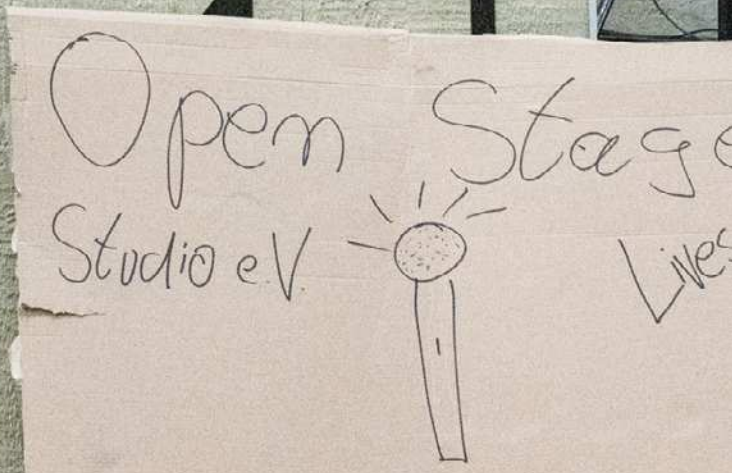 Open Stage
Studio e.V.
Lives